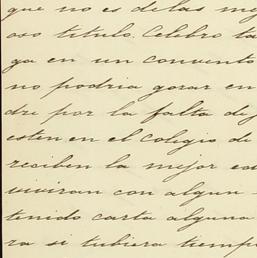 que no es de las mej
oso titulo. Celebro ta
ga en un convento
no podria gozar en
dre por la falta de
esten en el Colegio de
reciben la mejor ed
viviran con algun
tenido carta alguna
ra si tubiera tiemp